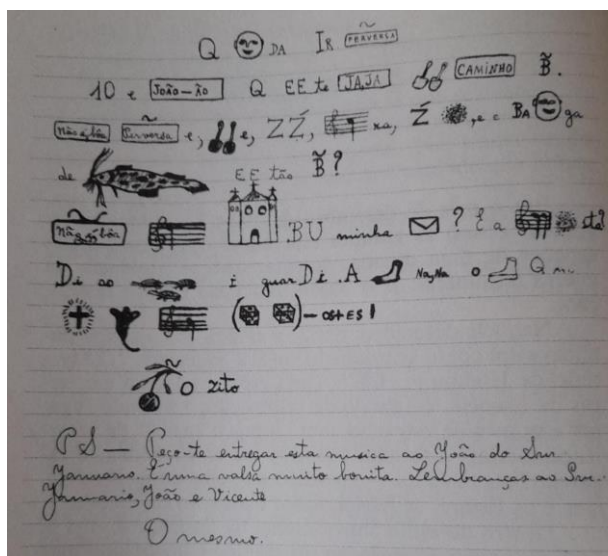 Q DA IR PERVERSA
10 e JOÃO-ÃO Q EE te JAJA CAMINHO B̃.
Não é bôa Perversa e, e, ZZ, xa, Ź ,e e BA ga
de EE tão B̃?
Não é bôa BU minha ? E a sta?
Di ao i guar Di. A Na, Na o Q
( )- OSTES!
O zito
PS — Peço-te entregar esta musica ao João do Snr.
Januario. É uma valsa muito bonita. Lembranças ao Snr.
Januario, João e Vicente
O mesmo.